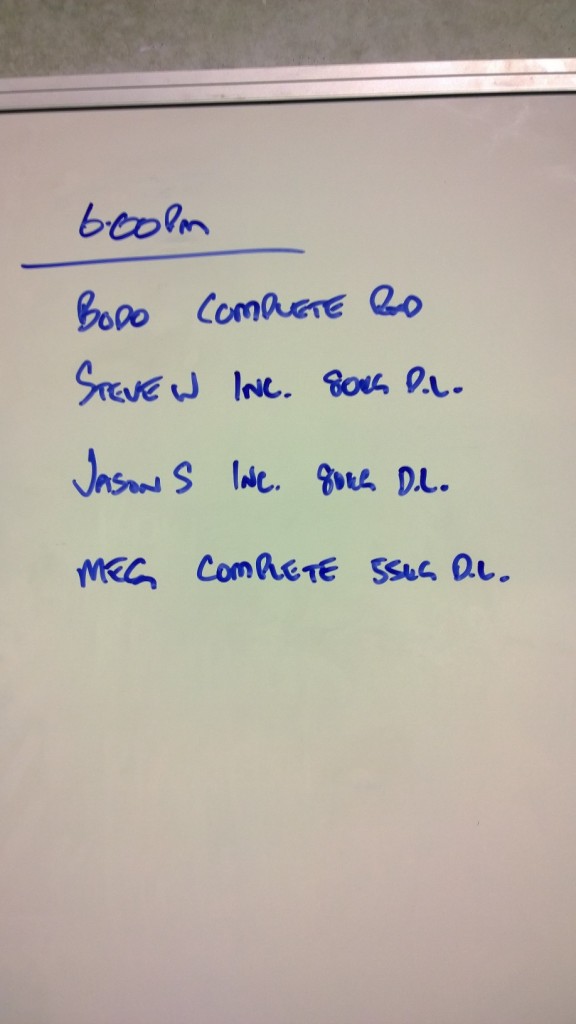 6:00PM
BODO COMPLETE RXD
STEVE W INC. 80KG D.L.
JASON S INC. 80KG D.L.
MEG COMPLETE 55KG D.L.